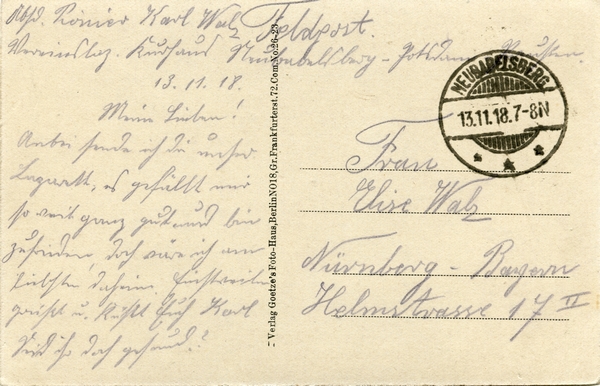 Absd. Pionier Karl Walz Feldpost.
Vereinslaz. Kurhaus Neubabelsberg - Potsdam Preußen.
13.11.18.
Meine Lieben!
Anbei sende ich di unser
Lazarett, es gefällt mir
so weit ganz gut und bin
zufrieden, doch wäre ich am
liebsten daheim. Einstweilen
grüßt u. küßt Euch Karl
Seid ihr doch gesund?
Verlag Goetze's Foto-Haus, Berlin NO18, Gr. Frankfurterst. 72. Com. No. 26-23
NEUBABELSBERG
13.11.18.7-8N
Frau
Elise Walz
Nürnberg - Bayern
Helmstrasse 17 II